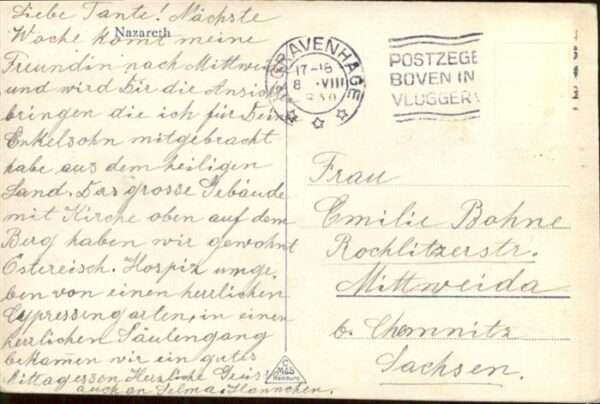 Liebe Tante! Nächste
Nazareth
Woche komt meine
Freundin nach Mittweida
und wird Dir die Ansichten
bringen die ich für Dein
Enkelsohn mitgebracht
habe aus dem heiligen
Land. Das grosse Gebäude
mit Kirche oben auf dem
Berg haben wir gewohnt
Östereisch. Hospiz umge.
ben von einen herrlichen
Cypressengarten, in einen
herrlichen Säulengang
bekamen wir ein gutes
Mittagessen Herzliche
auch an Selma, Hannchen.
'S GRAVENHAGE
17-18
8 .VIII
POSTZEGE
BOVEN IN
VLUGGER
Frau
Emilie Bohne
Rochlitzerstr.
Mittweida
b. Chemnitz
Sachsen.